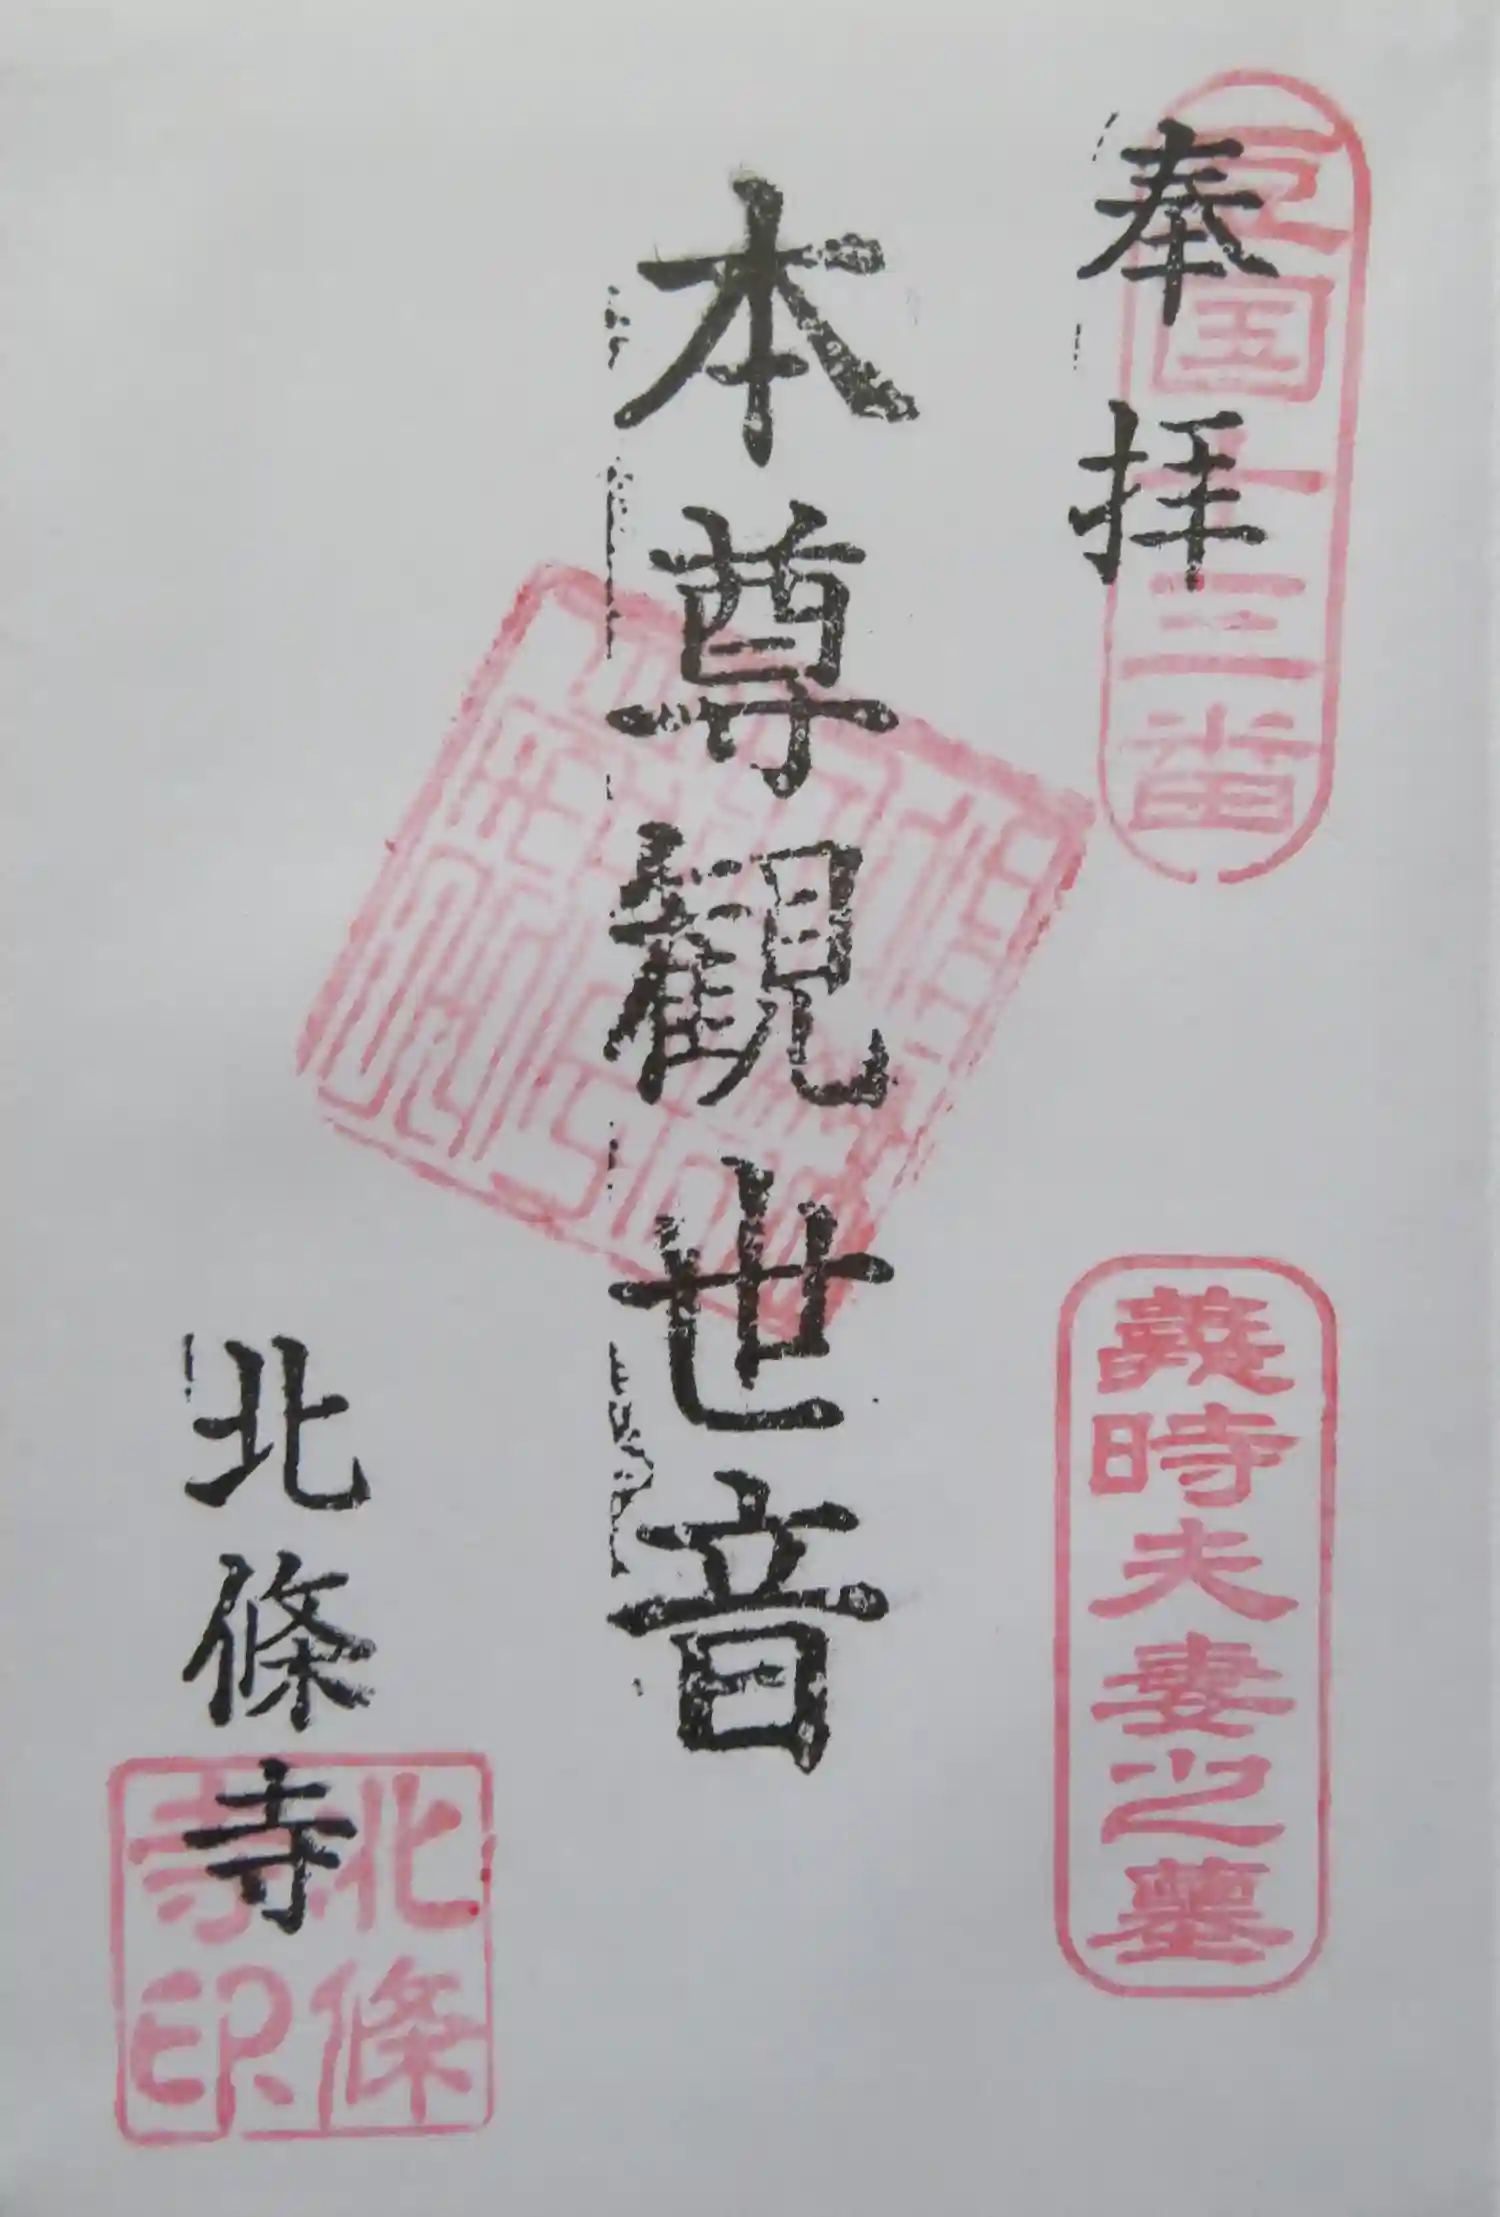 奉拝
豆国十三番
義時夫妻之墓
本尊観世音
北條寺
北條寺印